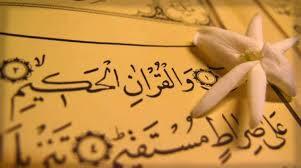 ١ وَالْقُرْآنِ الْحَكِيمِ ٢
عَلَى صِرَاطٍ مُسْتَقِيمٍ ٤